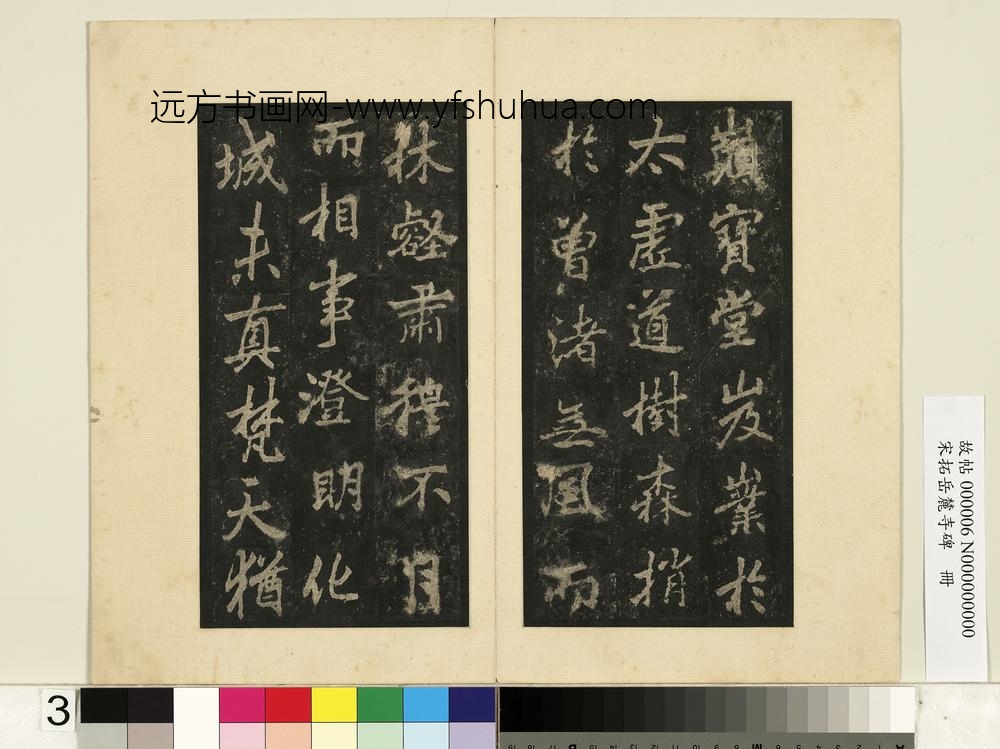 远方书画网-www.yfshuhua.com
巔寶堂岌嶪於
太虛道樹森捎
於曽渚无風而
林壑肅穆不月
而相事澄明化
城未真梵天猶
故帖 000006 N000000000
宋拓岳麓寺碑 冊
3